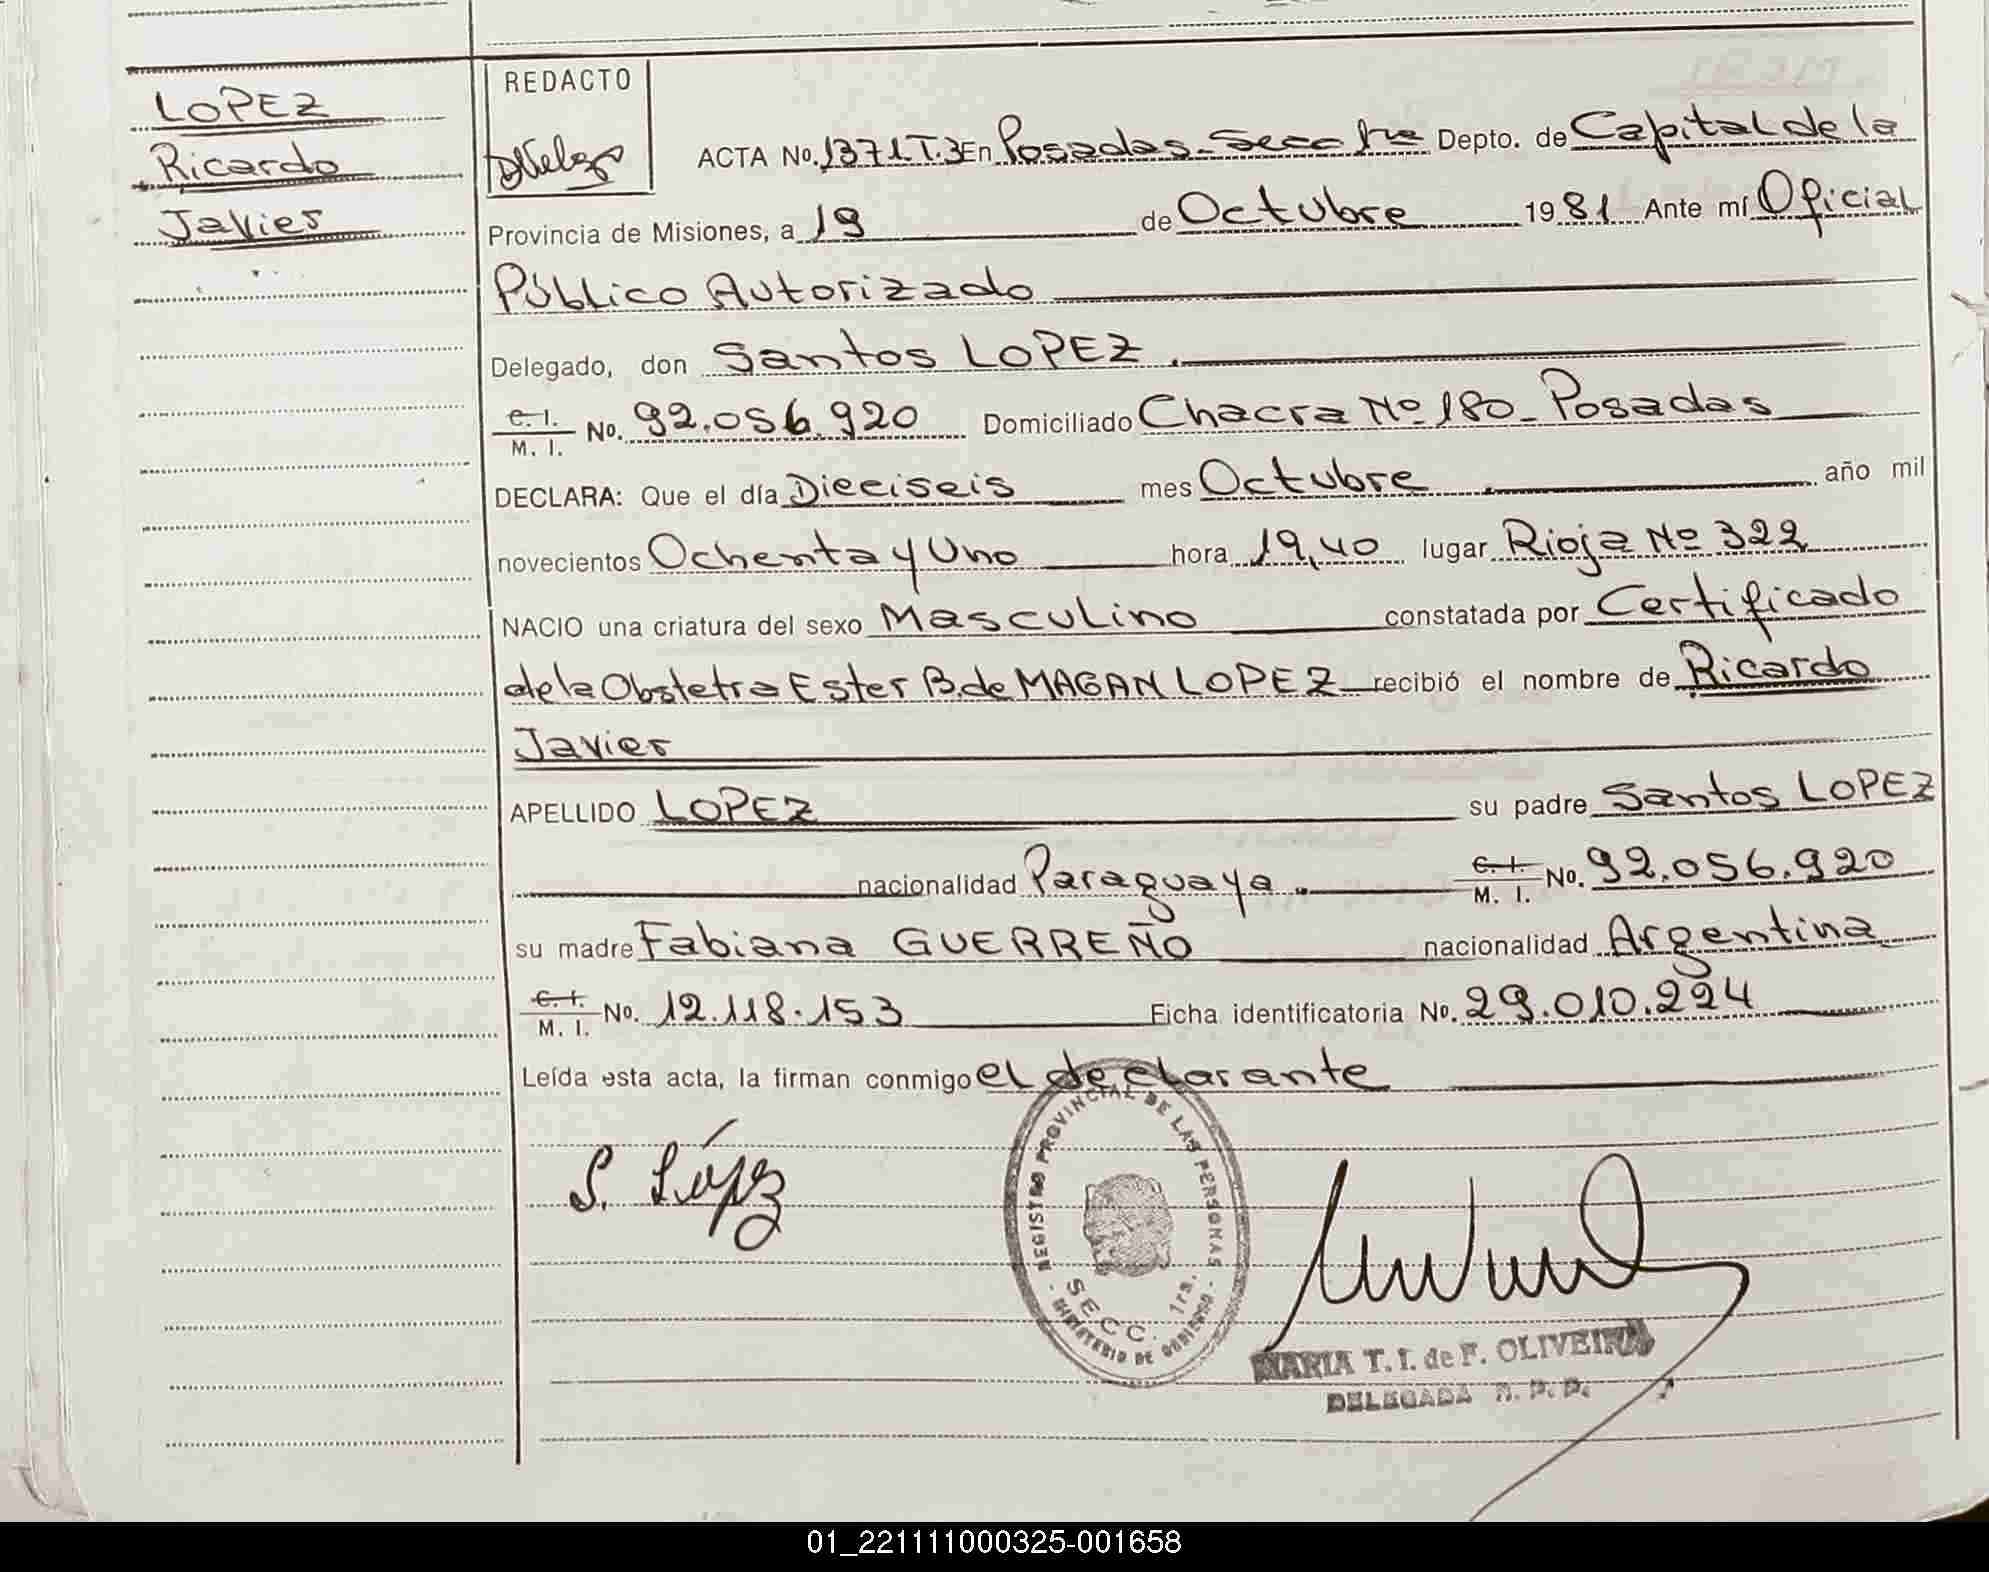 LOPEZ
Ricardo
Javier
REDACTO
ACTA No. 1371.T.3 En Posadas-Secc 1ra Depto. de Capital de la
Provincia de Misiones, a 19 de Octubre 1981 Ante mí Oficial
Público Autorizado
Delegado, don Santos LOPEZ.
C. I.
M. I. No. 92.056.920 Domiciliado Chacra Nº 180-Posadas
DECLARA: Que el día Dieciseis mes Octubre año mil
novecientos Ochenta y Uno hora 19,40 lugar Rioja Nº 322
NACIO una criatura del sexo Masculino constatada por Certificado
de la Obstetra Ester B. de MAGAN LOPEZ recibió el nombre de Ricardo
Javier
APELLIDO LOPEZ su padre Santos LOPEZ
nacionalidad Paraguaya. C. I.
M. I. No. 92.056.920
su madre Fabiana GUERREÑO nacionalidad Argentina
C. I.
M. I. No. 12.118.153 Ficha identificatoria No. 29.010.224
Leída esta acta, la firman conmigo el declarante
S. López
REGISTRO PROVINCIAL DE LAS PERSONAS
SECC. 1ra.
- MINISTERIO DE GOBIERNO -
MARIA T. I. de F. OLIVEIRA
DELEGADA R. P. P.
01_221111000325-001658